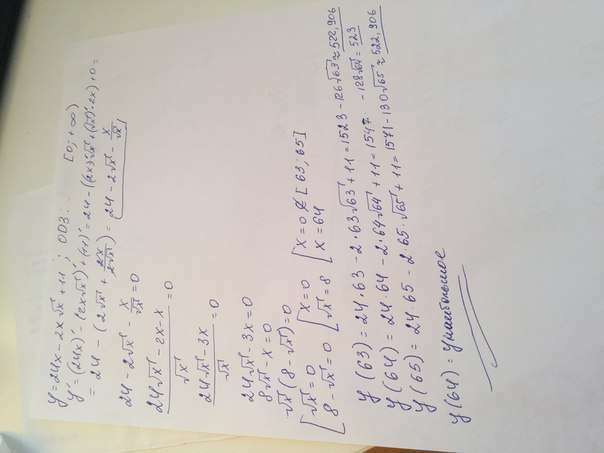 y = 24x - 2x√x + 11 ; ОДЗ: [0; +∞)
y' = (24x)' - (2x√x)' + (11)' = 24 - ((2x)'·√x + (√x)'·2x) + 0 =
= 24 - (2√x + 2x/2√x) = 24 - 2√x - x/√x
24 - 2√x - x/√x = 0
24√x - 2x - x / √x = 0
24√x - 3x / √x = 0
24√x - 3x = 0
8√x - x = 0
√x (8 - √x) = 0
[ √x = 0 [ x = 0 [ x = 0 ∉ [63; 65]
8 - √x = 0 √x = 8 x = 64
y(63) = 24·63 - 2·63√63 + 11 = 1523 - 126√63 ≈ 522,906
y(64) = 24·64 - 2·64√64 + 11 = 1547 - 128√64 = 523
y(65) = 24·65 - 2·65·√65 + 11 = 1571 - 130√65 ≈ 522,906
y(64) наибольшое